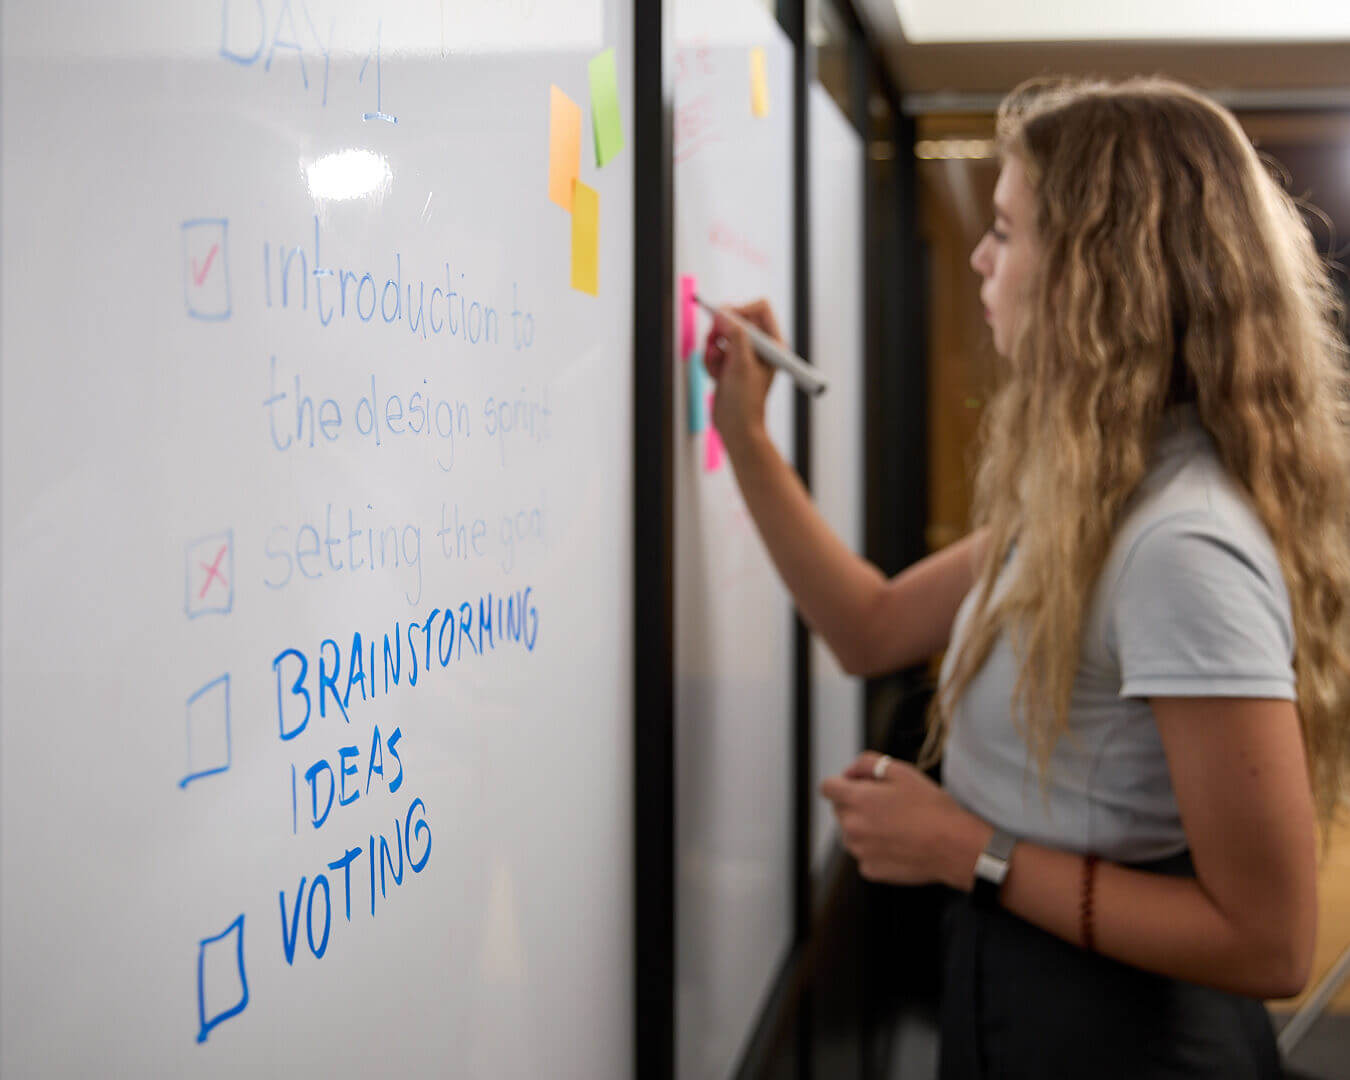 DAY 1
introduction to
the design sprint
setting the goal
BRAINSTORMING
IDEAS
VOTING